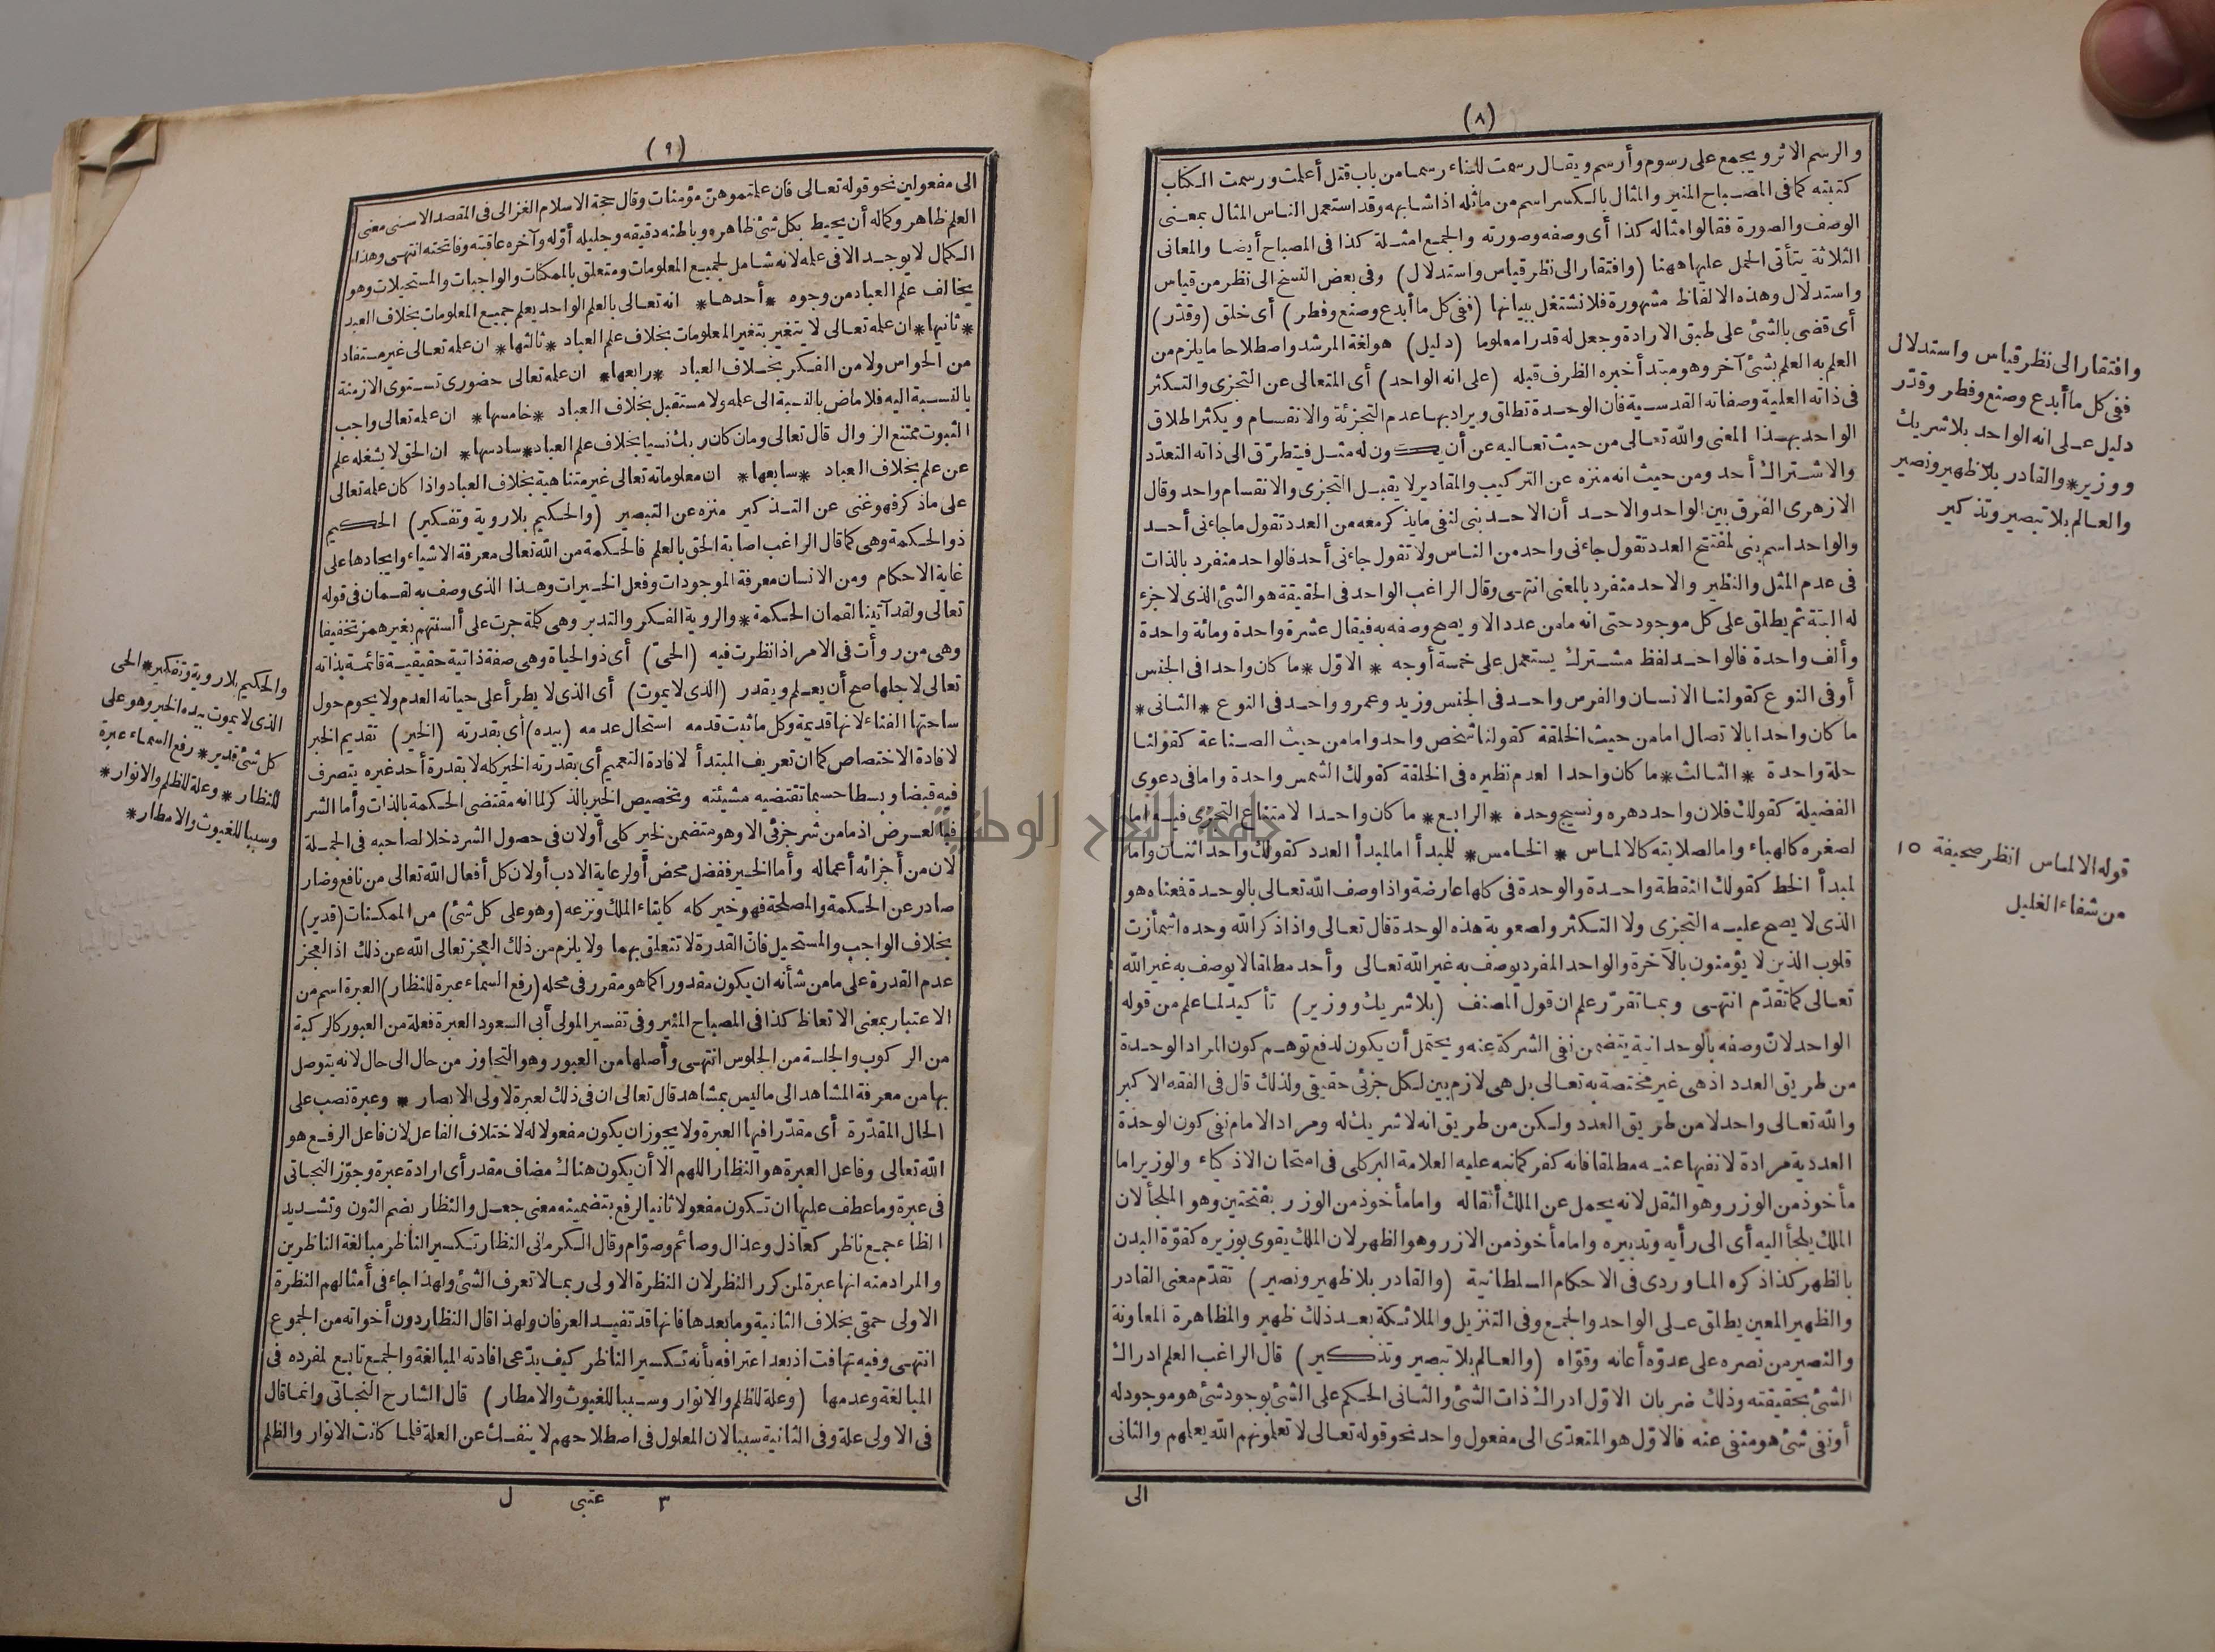 (٨)
والرسم الاثر ويجمع على رسوم وأرسم ويقال رسمت للبناء رسما من باب قتل أعلمت ورسمت الكتاب
كتبته كما فى المصباح المنير والمثال بالكسر اسم من ماثله اذا شابهه وقد استعمل الناس المثال بمعنى
الوصف والصورة فقالوا مثاله كذا أى وصفه وصورته والجمع امثلة كذا فى المصباح أيضا والمعانى
الثلاثة يتأتى الحمل عليها ههنا (وافتقار الى نظر قياس واستدلال) وفى بعض النسخ الى نظر من قياس
واستدلال وهذه الالفاظ مشهورة فلا نشتغل ببيانها (ففى كل ما أبدع وصنع وفطر) أى خلق (وقدّر)
أى قضى بالشئ على طبق الارادة وجعل له قدرا معلوما (دليل) هو لغة المرشد واصطلاحا ما يلزم من
العلم به العلم بشئ آخر وهو مبتدأ خبره الظرف قبله (على انه الواحد) أى المتعالى عن التجزى والتكثر
فى ذاته العلية وصفاته القدسية فان الوحدة تطلق ويراد بها عدم التجزئة والانقسام ويكثر اطلاق
الواحد بهذا المعنى والله تعالى من حيث تعاليه عن أن يكون له مثل فيتطرّق الى ذاته التعدّد
والاشتراك أحد ومن حيث انه منزه عن التركيب والمقادير لا يقبل التجزى والانقسام واحد وقال
الازهرى الفرق بين الواحد والاحد أن الاحد بنى لنفى ما يذكر معه من العدد تقول ما جاءنى أحد
والواحد اسم بنى لمفتتح العدد تقول جاءنى واحد من الناس ولا تقول جاءنى أحد فالواحد منفرد بالذات
فى عدم المثل والنظير والاحد منفرد بالمعنى انتهى وقال الراغب الواحد فى الحقيقة هو الشئ الذى لا جزء
له البتة ثم يطلق على كل موجود حتى انه ما من عدد الا ويصح وصفه به فيقال عشرة واحدة ومائة واحدة
وألف واحدة فالواحد لفظ مشترك يستعمل على خمسة أوجه * الاوّل * ما كان واحدا فى الجنس
أو فى النوع كقولنا الانسان والفرس واحد فى الجنس وزيد وعمرو واحد فى النوع * الثانى *
ما كان واحدا بالاتصال اما من حيث الخلقة كقولنا شخص واحد واما من حيث الصناعة كقولنا
حلة واحدة * الثالث * ما كان واحدا لعدم نظيره فى الخلقة كقولك الشمس واحدة واما فى دعوى
الفضيلة كقولك فلان واحد دهره ونسيج وحده * الرابع * ما كان واحدا لامتناع التجزى فيه اما
لصغره كالهباء واما لصلابته كالالماس * الخامس * للمبدأ اما لمبدأ العدد كقولك واحد اثنان واما
لمبدأ الخط كقولك النقطة واحدة والوحدة فى كلها عارضة واذا وصف الله تعالى بالوحدة فعناه هو
الذى لا يصح عليه التجزى ولا التكثر ولصعوبة هذه الوحدة قال تعالى واذا ذكر الله وحده اشمأزت
قلوب الذين لا يؤمنون بالآخرة والواحد المفرد يوصف به غير الله تعالى وأحد مطلقا لا يوصف به غير الله
تعالى كما تقدّم انتهى وبما تقرّر علم ان قول المصنف (بلا شريك ووزير) تأكيد لما علم من قوله
الواحد لانّ وصفه بالوحدانية يتضمن نفى الشركة عنه ويحتمل أن يكون لدفع توهم كون المراد الوحدة
من طريق العدد اذ هى غير مختصة به تعالى بل هى لازم بين لكل جزئى حقيقى ولذلك قال فى الفقه الاكبر
والله تعالى واحد لا من طريق العدد ولكن من طريق انه لا شريك له ومراد الامام نفى كون الوحدة
العددية مرادة لا نفيها عنه مطلقا فانه كفر كما نبه عليه العلامة البركلى فى امتحان الاذكياء والوزير اما
مأخوذ من الوزر وهو الثقل لانه يحمل عن الملك أثقاله واما مأخوذ من الوزر بفتحتين وهو الملجأ لان
الملك يلجأ اليه أى الى رأيه وتدبيره واما مأخوذ من الازر وهو الظهر لان الملك يقوى بوزيره كقوّة البدن
بالظهر كذا ذكره الماوردى فى الاحكام السلطانية (والقادر بلا ظهير ونصير) تقدّم معنى القادر
والظهير المعين يطلق على الواحد والجمع وفى التنزيل والملائكة بعد ذلك ظهير والمظاهرة المعاونة
والنصير من نصره على عدوّه أعانه وقوّاه (والعالم بلا تبصير وتذكير) قال الراغب العلم ادراك
الشئ بحقيقته وذلك ضربان الاوّل ادراك ذات الشئ والثانى الحكم على الشئ بوجود شئ هو موجود له
أو نفى شئ هو منفى عنه فالاوّل هو المتعدّى الى مفعول واحد نحو قوله تعالى لا تعلمونهم الله يعلمهم والثانى
الى
وافتقار الى نظر قياس واستدلال
ففى كل ما أبدع وصنع وفطر وقدّر
دليل على انه الواحد بلا شريك
ووزير * والقادر بلا ظهير ونصير
والعالم بلا تبصير وتذكير
قوله الالماس انظر صحيفة ١٥
من شفاء الغليل
(٩)
الى مفعولين نحو قوله تعالى فان علمتموهنّ مؤمنات وقال حجة الاسلام الغزالى فى المقصد الاسنى معنى
العلم ظاهر وكماله أن يحيط بكل شئ ظاهره وباطنه دقيقه وجليله أوّله وآخره عاقبته وفاتحته انتهى وهذا
الكمال لا يوجد الا فى علمه لانه شامل لجميع المعلومات ومتعلق بالممكنات والواجبات والمستحيلات وهو
يخالف علم العباد من وجوه * أحدها * انه تعالى بالعلم الواحد يعلم جميع المعلومات بخلاف العبد
* ثانيها * ان علمه تعالى لا يتغير بتغير المعلومات بخلاف علم العباد * ثالثها * ان علمه تعالى غير مستفاد
من الحواس ولا من الفكر بخلاف العباد * رابعها * ان علمه تعالى حضورى تستوى الازمنة
بالنسبة اليه فلا ماض بالنسبة الى علمه ولا مستقبل بخلاف العباد * خامسها * ان علمه تعالى واجب
الثبوت ممتنع الزوال قال تعالى وما كان ربك نسيا بخلاف علم العباد * سادسها * ان الحق لا يشغله علم
عن علم بخلاف العباد * سابعها * ان معلوماته تعالى غير متناهية بخلاف العباد واذا كان علمه تعالى
على ما ذكر فهو غنى عن التذكير منزه عن التبصير (والحكيم بلا روية وتفكير) الحكيم
ذو الحكمة وهى كما قال الراغب اصابة الحق بالعلم فالحكمة من الله تعالى معرفة الاشياء وايجادها على
غاية الاحكام ومن الانسان معرفة الموجودات وفعل الخيرات وهذا الذى وصف به لقمان فى قوله
تعالى ولقد آتينا لقمان الحكمة * والروية الفكر والتدبر وهى كلمة جرت على ألسنتهم بغير همز تخفيفا
وهى من روأت فى الامر اذا نظرت فيه (الحىّ) أى ذو الحياة وهى صفة ذاتية حقيقية قائمة بذاته
تعالى لاجلها صح أن يعلم ويقدر (الذى لا يموت) أى الذى لا يطرأ على حياته العدم ولا يحوم حول
ساحتها الفناء لانها قديمة وكل ما ثبت قدمه استحال عدمه (بيده) أى بقدرته (الخير) تقديم الخبر
لافادة الاختصاص كما ان تعريف المبتدأ لافادة التعميم أى بقدرته الخير كله لا بقدرة أحد غيره يتصرف
فيه قبضا وبسطا حسبما تقتضيه مشيئته وتخصيص الخير بالذكر لما انه مقتضى الحكمة بالذات وأما الشر
فبالعرض اذ ما من شر جزئى الا وهو متضمن لخير كلى أو لان فى حصول الشر دخلا لصاحبه فى الجملة
لان من أجزائه أعماله وأما الخير ففضل محض أو لرعاية الادب أو لان كل أفعال الله تعالى من نافع وضار
صادر عن الحكمة والمصلحة فهو خير كله كايتاء الملك ونزعه (وهو على كل شئ) من الممكنات (قدير)
بخلاف الواجب والمستحيل فانّ القدرة لا تتعلق بهما ولا يلزم من ذلك العجز تعالى الله عن ذلك اذ العجز
عدم القدرة على ما من شأنه ان يكون مقدورا كما هو مقرر فى محله (رفع السماء عبرة للنظار) العبرة اسم من
الاعتبار بمعنى الاتعاظ كذا فى المصباح المنير وفى تفسير المولى أبى السعود العبرة فعلة من العبور كالركبة
من الركوب والجلسة من الجلوس انتهى وأصلها من العبور وهو التجاوز من حال الى حال لانه يتوصل
بها من معرفة المشاهد الى ما ليس بمشاهد قال تعالى ان فى ذلك لعبرة لاولى الابصار * وعبرة نصب على
الحال المقدّرة أى مقدّرا فيها العبرة ولا يجوز ان يكون مفعولا له لاختلاف الفاعل لان فاعل الرفع هو
الله تعالى وفاعل العبرة هو النظار اللهم الا أن يكون هناك مضاف مقدر أى ارادة عبرة وجوّز النجاتى
فى عبرة وما عطف عليها ان تكون مفعولا ثانيا لرفع بتضمينه معنى جعل والنظار بضم النون وتشديد
الظاء جمع ناظر كعاذل وعذال وصائم وصوّام وقال الكرمانى النظار تكسير الناظر مبالغة الناظرين
والمراد منه انها عبرة لمن كرر النظر لان النظرة الاولى ربما لا تعرف الشئ ولهذا جاء فى أمثالهم النظرة
الاولى حمقى بخلاف الثانية وما بعدها فانها قد تفيد العرفان ولهذا قال النظار دون أخواته من الجموع
انتهى وفيه تهافت اذ بعد اعترافه بأنه تكسير الناظر كيف يدّعى افادته المبالغة والجمع تابع لمفرده فى
المبالغة وعدمها (وعلة للظلم والانوار وسببا للغيوث والامطار) قال الشارح النجاتى وانما قال
فى الاولى علة وفى الثانية سببا لان المعلول فى اصطلاحهم لا ينفك عن العلة فلما كانت الانوار والظلم
٣ عتبى ل
والحكيم بلا روية وتفكير * الحى
الذى لا يموت بيده الخير وهو على
كل شئ قدير * رفع السماء عبرة
للنظار * وعلة للظلم والانوار *
وسببا للغيوث والامطار *
جامعة النجاح الوطنية